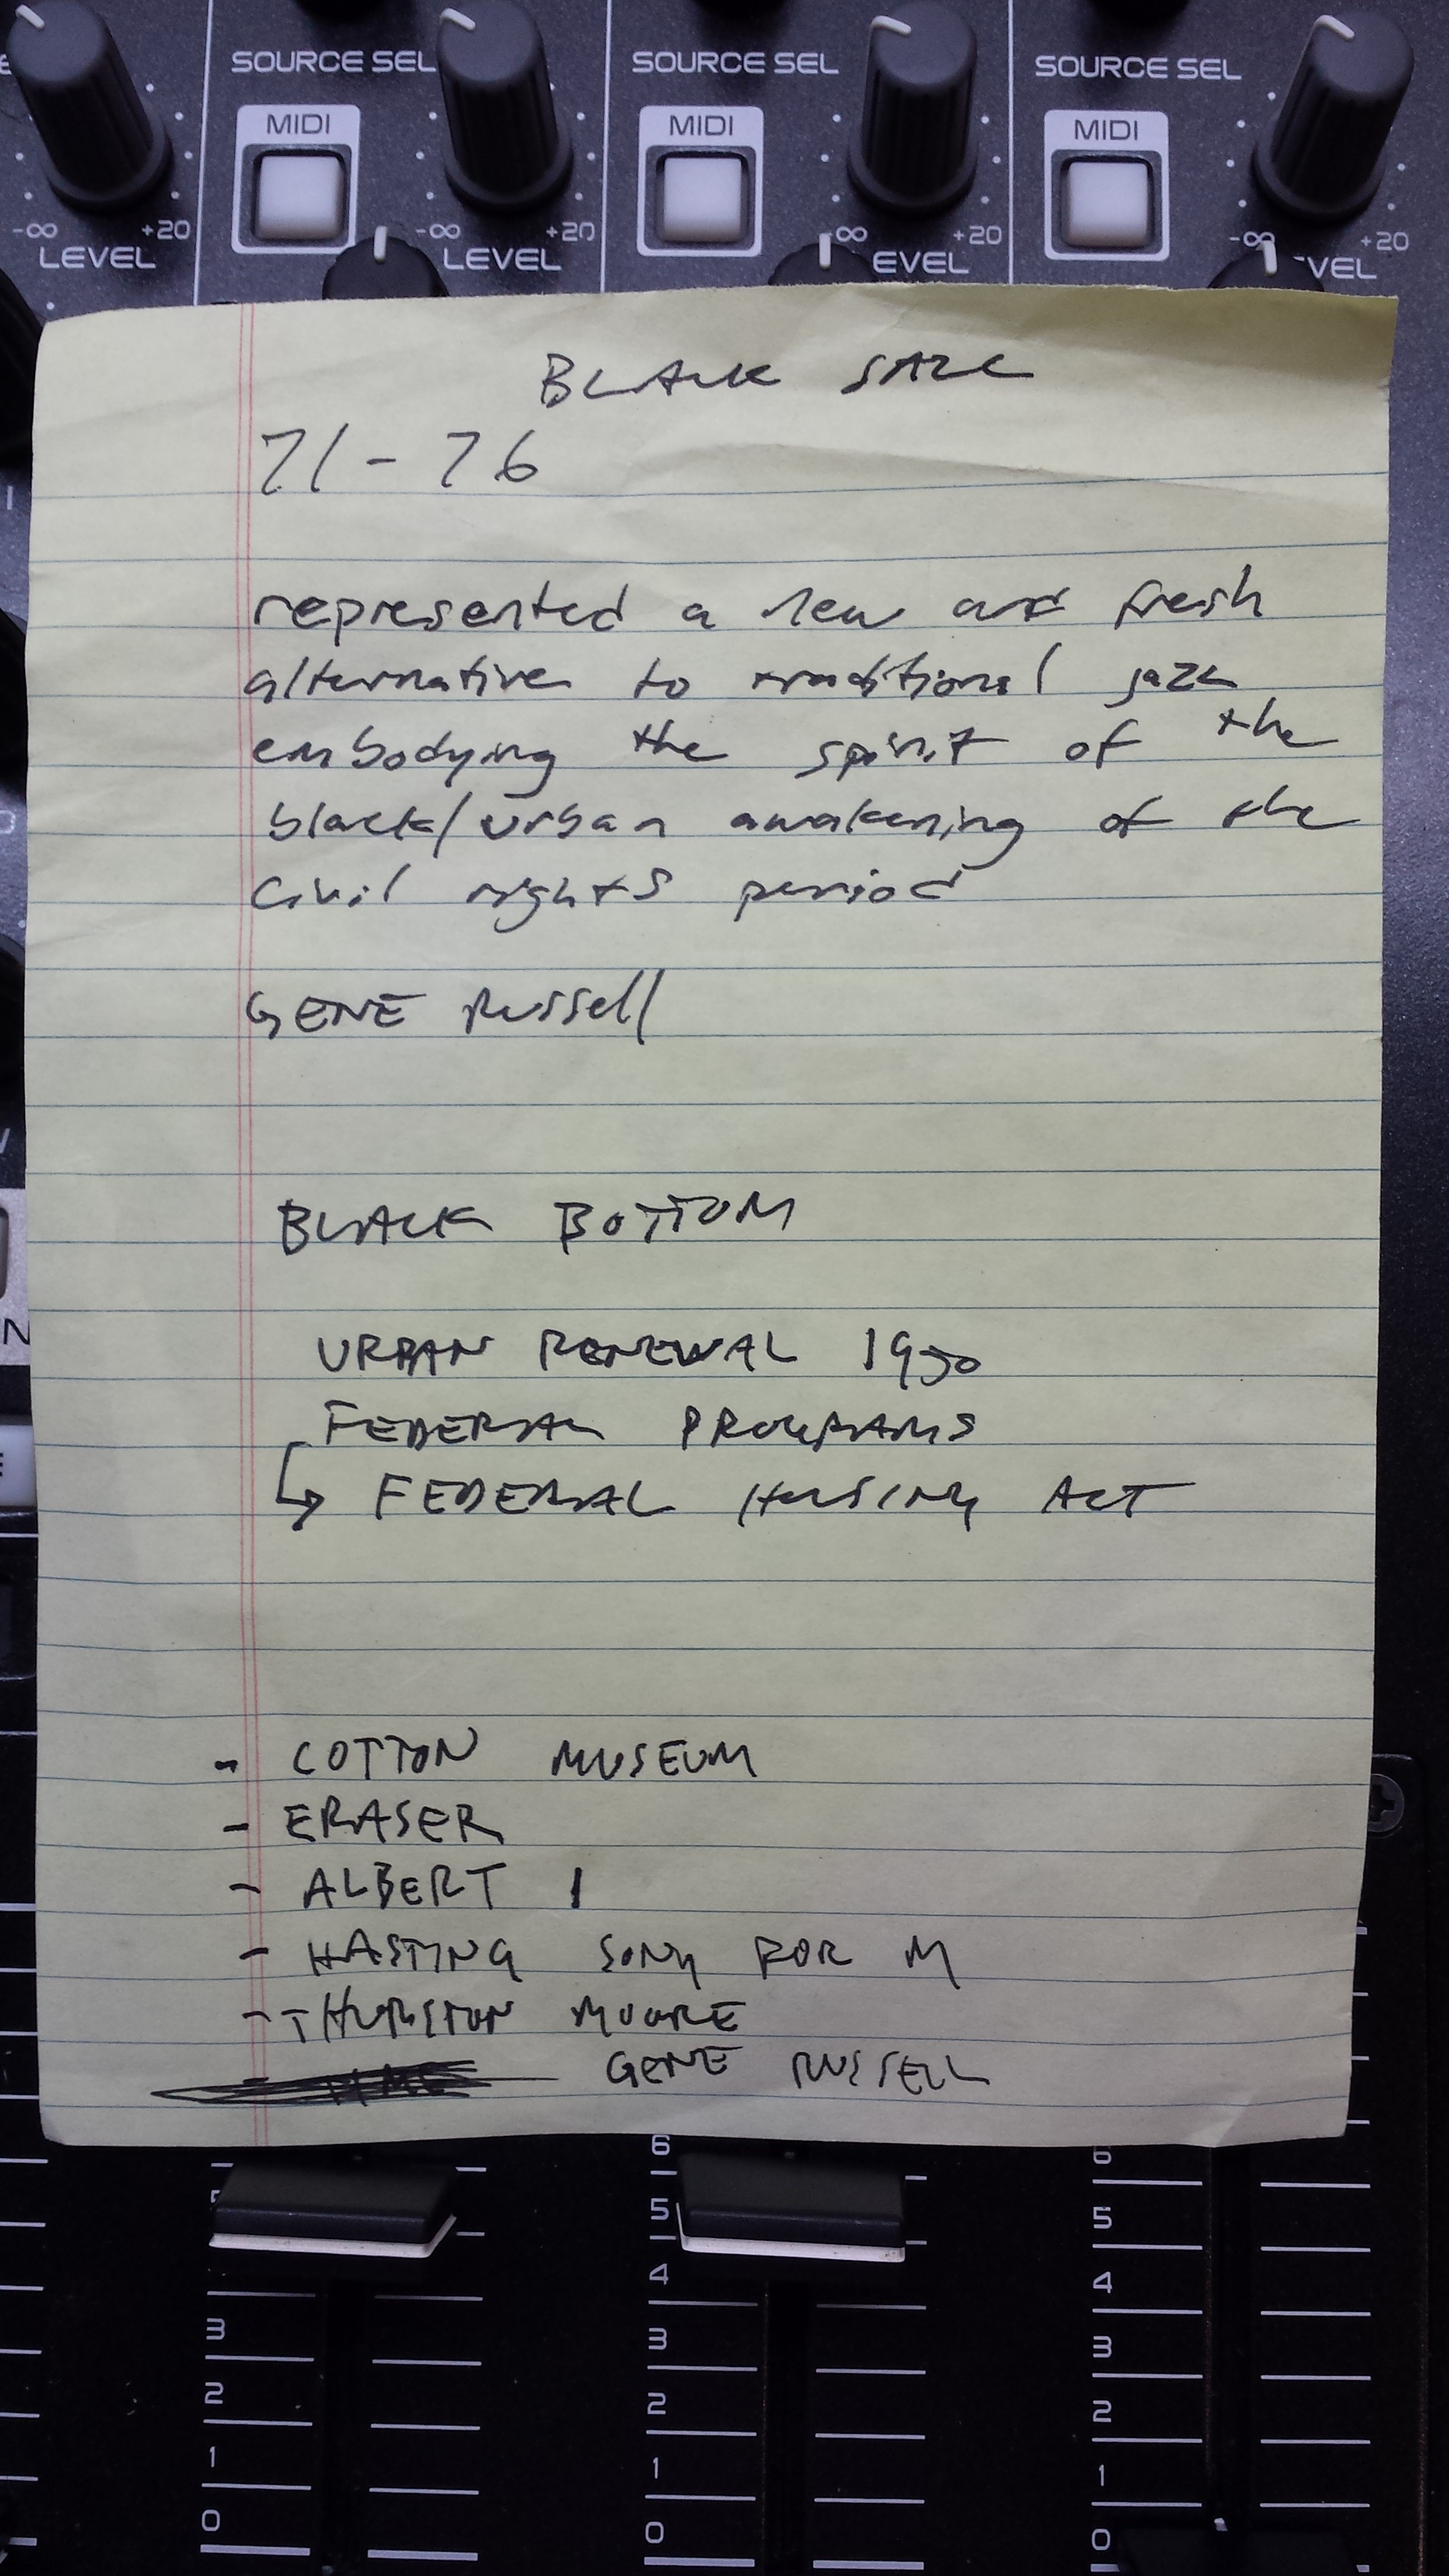 SOURCE SEL SOURCE SEL SOURCE SEL
MIDI MIDI MIDI
-∞ +20 -∞ +20 -∞ +20 -∞ +20
LEVEL LEVEL EVEL VEL
BLACK JAZZ
71-76
represented a new and fresh
alternative to traditional jazz
embodying the spirit of the
black/urban awakening of the
civil rights period
GENE Russell
BLACK BOTTOM
URBAN RENEWAL 1950
FEDERAL PROGRAMS
↳ FEDERAL HOUSING ACT
- COTTON MUSEUM
- ERASER
- ALBERT 1
- HASTING SONG FOR M
- THURSTON MOORE
GENE RUSSELL
6 6
5 5 5
4 4
3 3 3
2 2 2
1 1 1
0 0 0